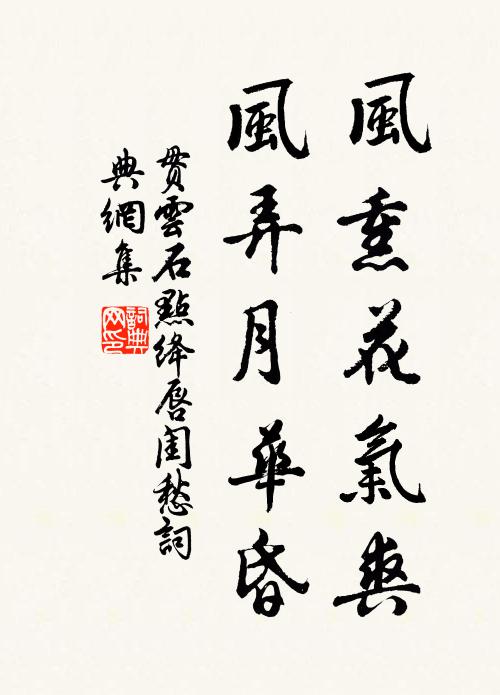 風熏花氣爽
風弄月華昏
貫雲石點絳唇閨愁詞
典網集
詞典
网印